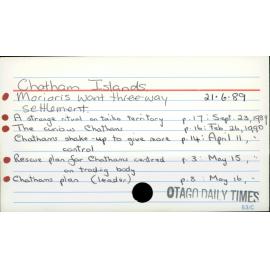 Chatham Islands
Morioris want three-way settlement 21.6.89
A strange ritual on taiko territory p.17: Sept. 23, 1989
The curious Chathams p.16: Feb. 26, 1990
Chathams shake-up to give more control p.14: April 11, "
Rescue plan for Chathams centred on trading body p.3: May 15, "
Chathams plan (leader) p.8: May 16, "
OTAGO DAILY TIMES